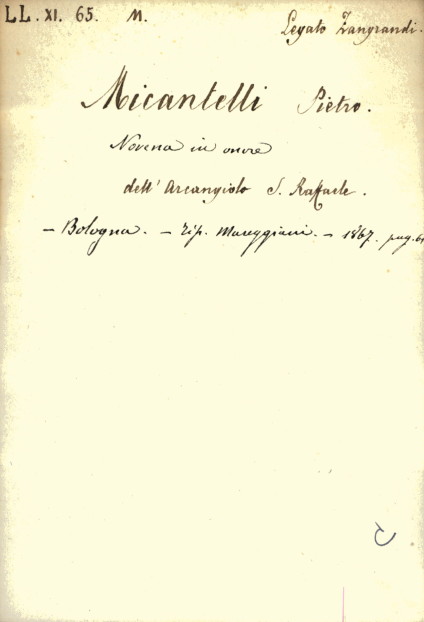 LL. XI. 65. M. Legato Zangrandi.
Micantelli Pietro.
Novena in onore
dell' Arcangiolo S. Raffaele.
- Bologna. - Tip. Mareggiani. - 1867. pag. 64